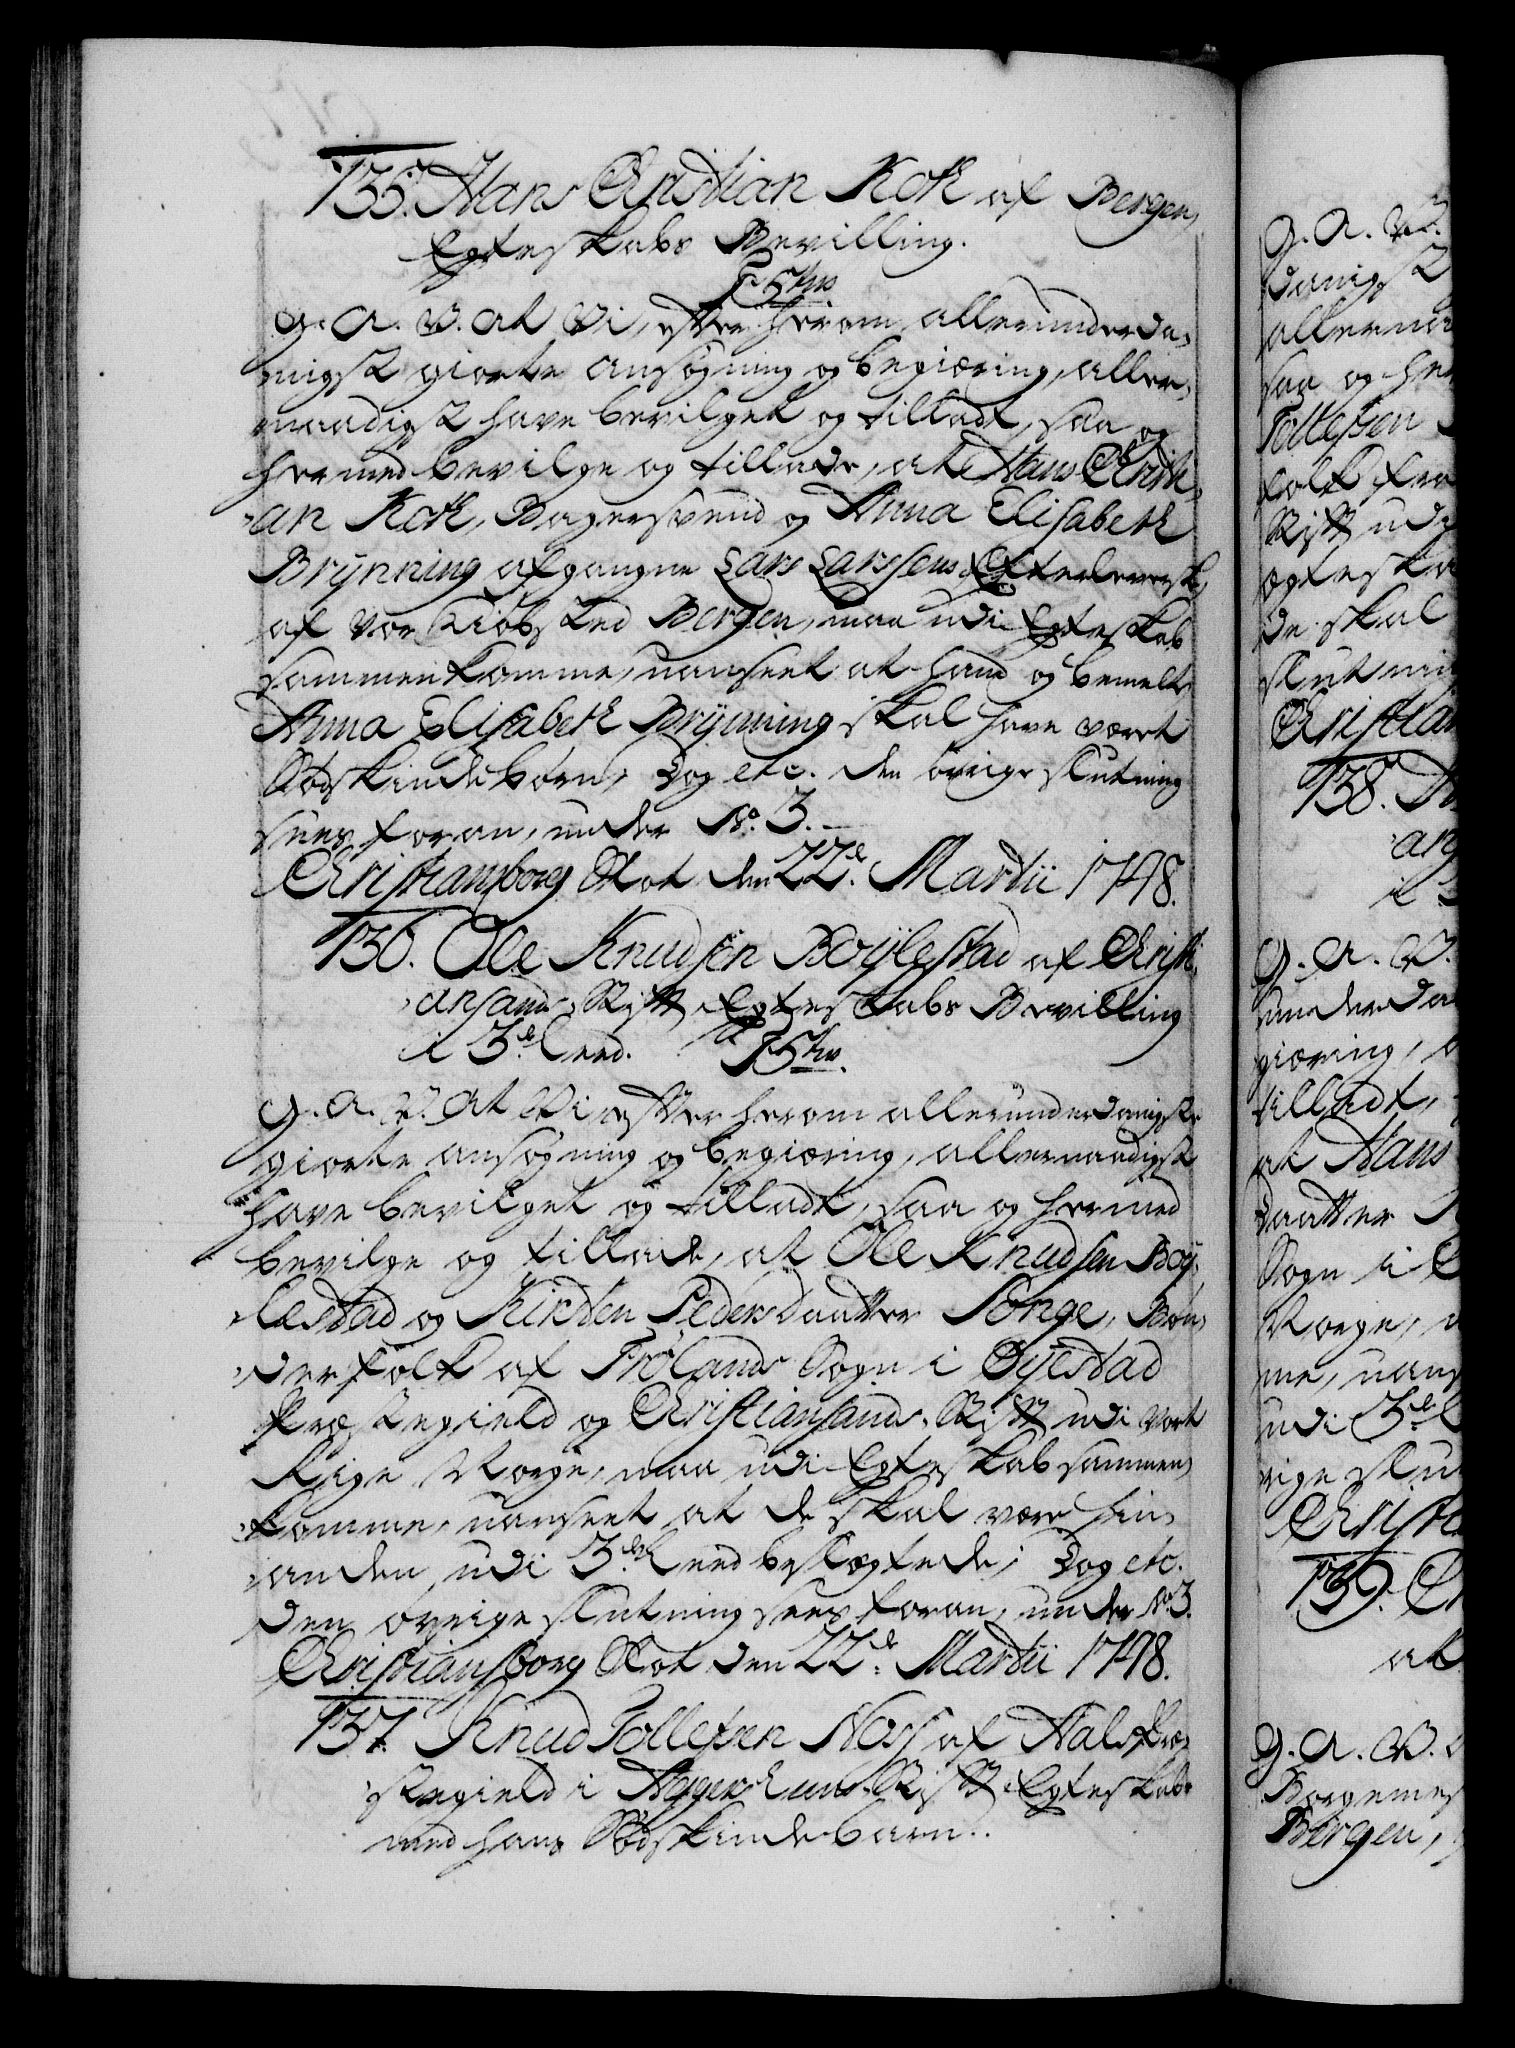 135. Hans Christian Kok af Bergen,
Egteskabs Bevilling.
G. A. V. at Vi, efter herom allerunderda-
nigst giorte Ansøgning og begiæring, aller-
naadigst have bevilget og tilladt, saa og
hermed bevilge og tillade, at Hans Christi-
an Kok, Bagersvend og Anna Elisabeth
Brÿnning afgangne Lars Larssens Efterleverske,
af Vor Kiøbsted Bergen, maa udi Egteskab
sammenkomme, uanseet at hand og bemelte
Anna Elisabeth Brÿnning skal have været
Sødskindebørn, Dog etc. den øvrige slutning
sees foran, under No. 3.
Christiansborg Slot den 22de Martii 1748.
136. Ole Knudsen Boÿlestad af Christi-
ansands Stift Egteskabs Bevilling
i 3de Leed.
G. A. V. at Vi efter herom allerunderdanigste
giorte ansøgning og begiæring, allernaadigst
have bevilget og tilladt, saa og hermed
bevilge og tillade, at Ole Knudsen Boÿ-
lestad og Kirsten Pedersdaatter Songe, Bøn-
derfolk af Frolands Sogn i Øÿestad
Præstegield og Christiansands Stift udi Vort
Rige Norge, maa udi Egteskab sammen-
komme, uanseet at de skal være hin-
anden udi 3de Leed beslægtede; Dog etc.
den øvrige slutning sees foran, under No. 3.
Christiansborg Slot den 22de Martii 1748.
137. Knud Tollefsen Næss af Aals Præ-
stegield i Aggershuus Stift Egteskab
med hans Sødskindebarn.
G. A. V.
allernaa
saa og her
Tollefsen
folk fra
Stift udi
ægteska
de skal
slutning
Christian
138.
G. A. V.
underda
giæring,
tilladt,
at Hans
daatter
Sogn i
Norge,
me, uans
udi 3de
rige slu
Christ
139.
G. A. V.
Borgemes
Bergen,